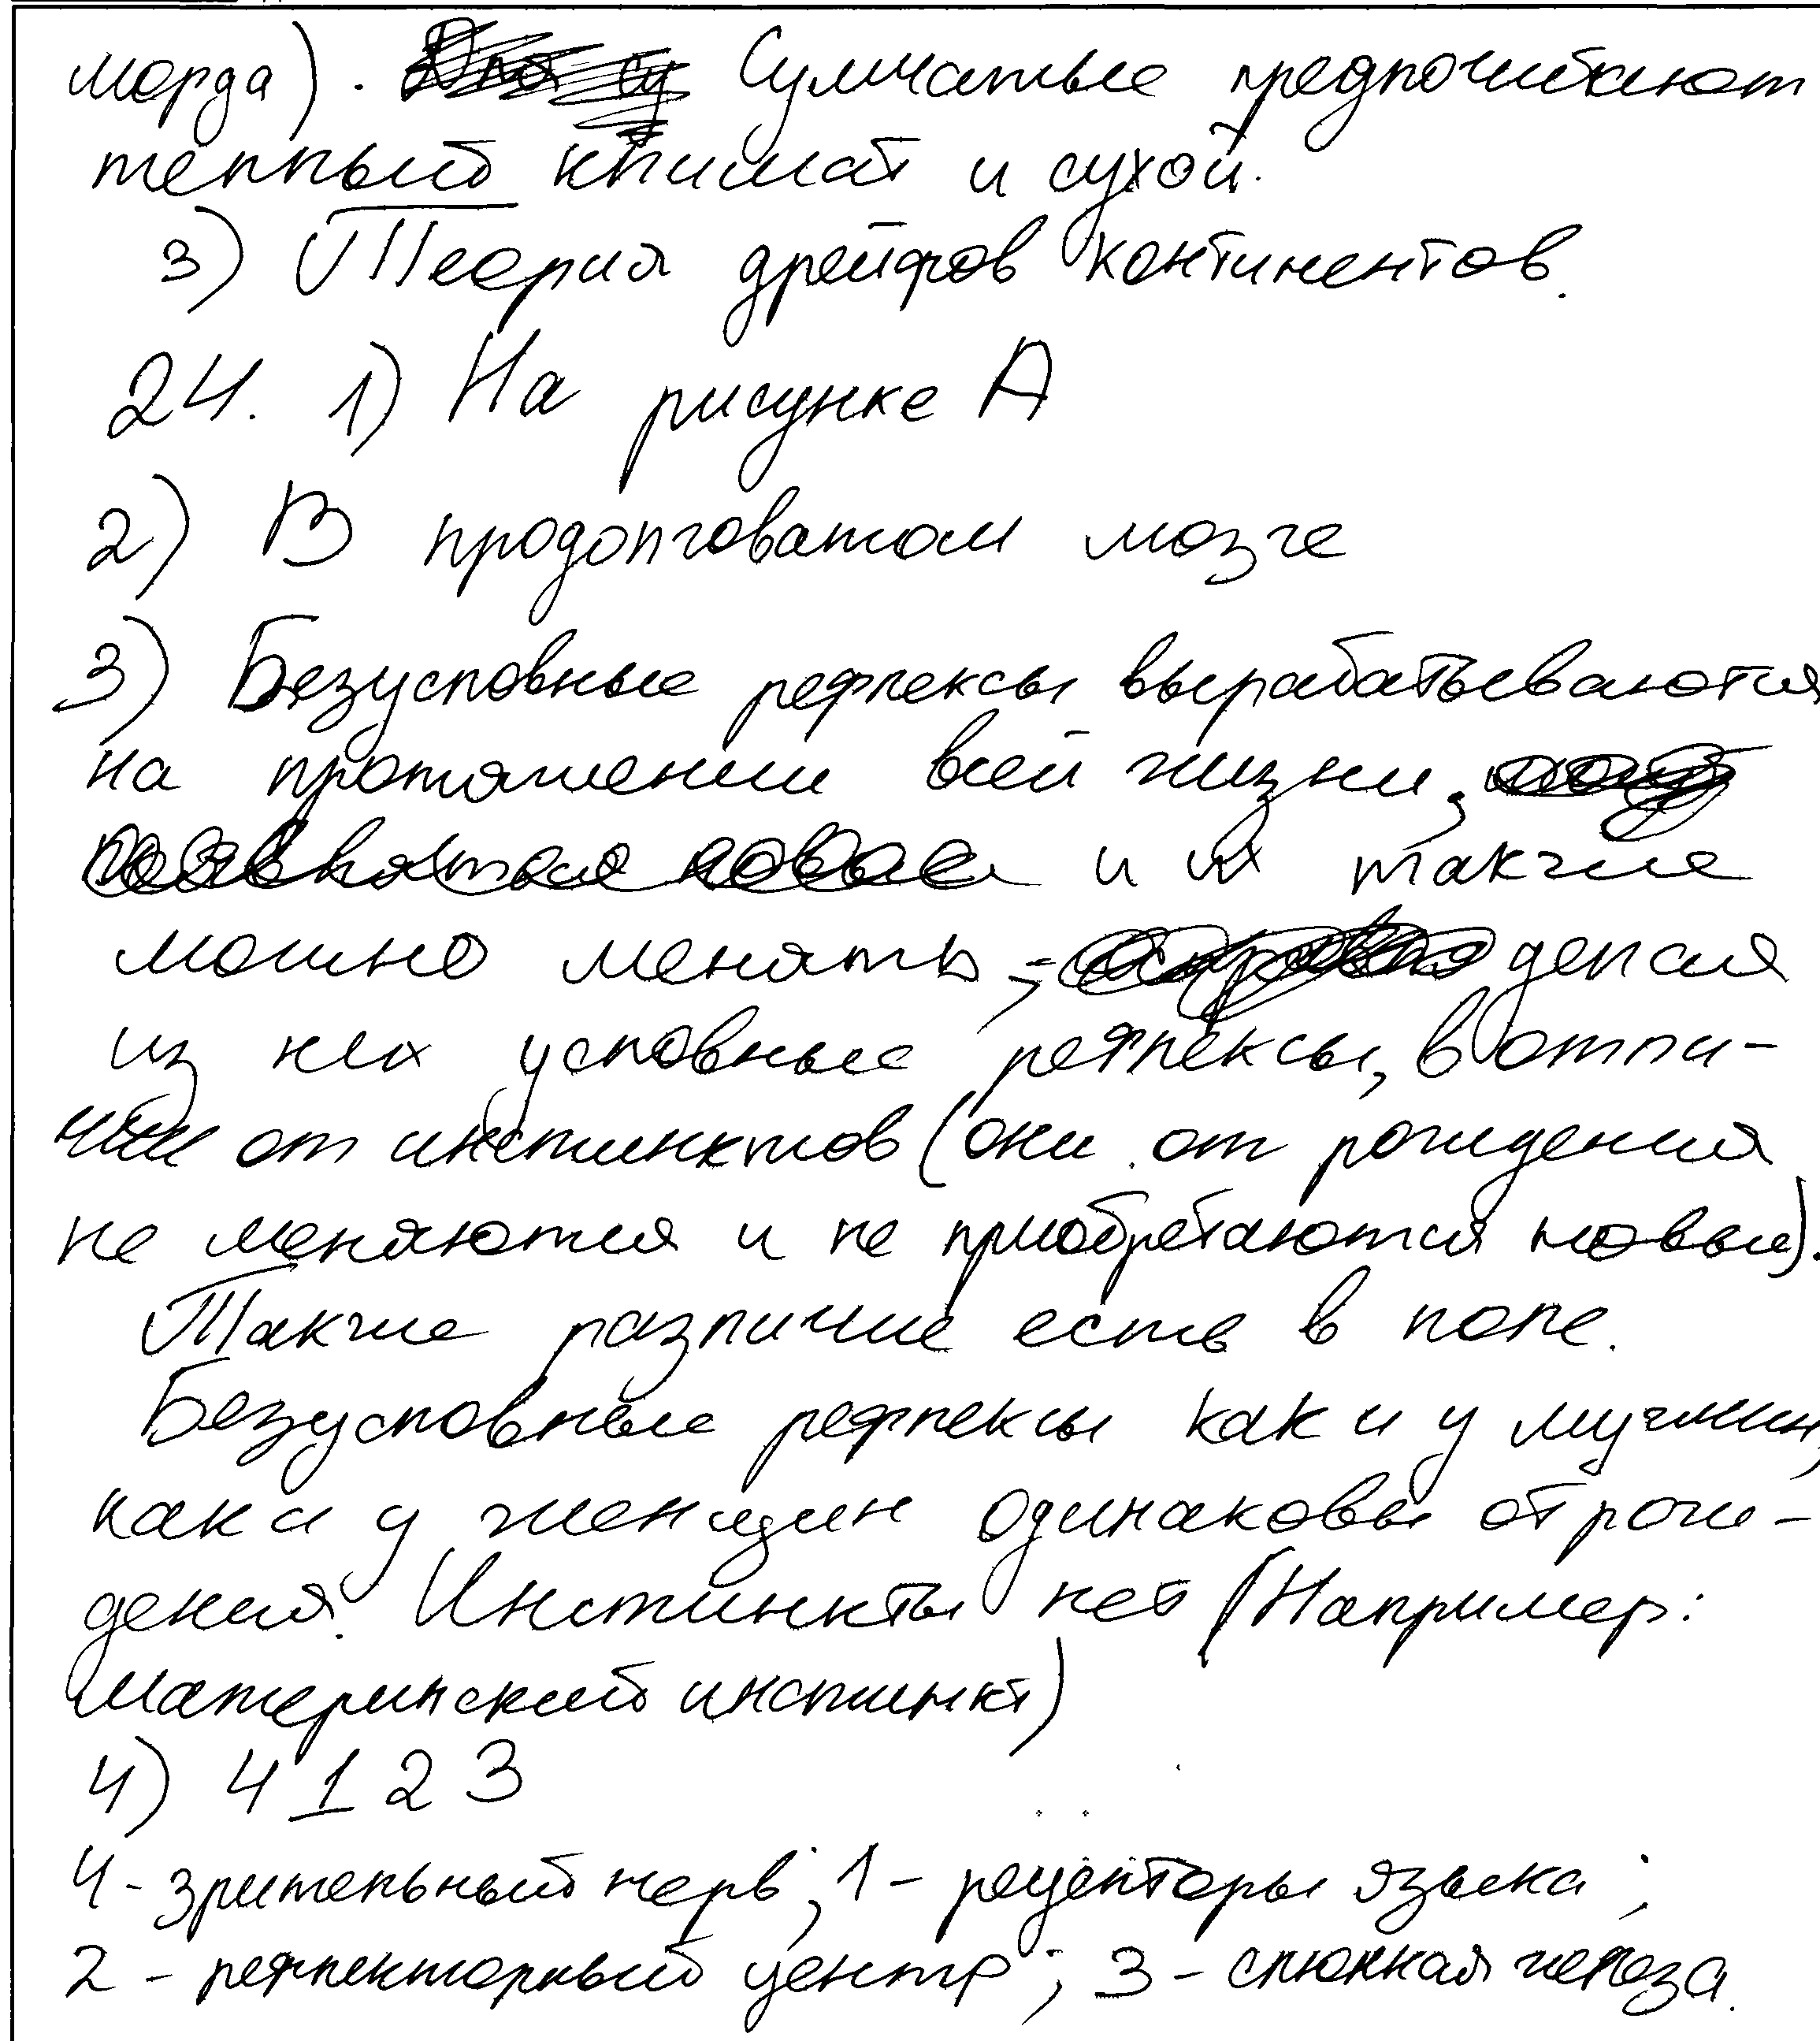 морда). Сумчатые предпочитают
теплый климат и сухой.
3) Теория дрейфов континентов.
24. 1) На рисунке А
2) В продолговатом мозге
3) Безусловные рефлексы вырабатываются
на протяжении всей жизни,
и их также
можно менять, делая
из них условные рефлексы, в отли-
чии от инстинктов (они от рождения
не меняются и не приобретаются новые).
Также различие есть в поле.
Безусловные рефлексы как и у мужчин,
как и у женщин одинаковы от рож-
дения. Инстинкты нет (Например:
материнский инстинкт)
4) 4 1 2 3
4 - зрительный нерв; 1 - рецепторы языка;
2 - рефлекторный центр; 3 - слюнная железа.